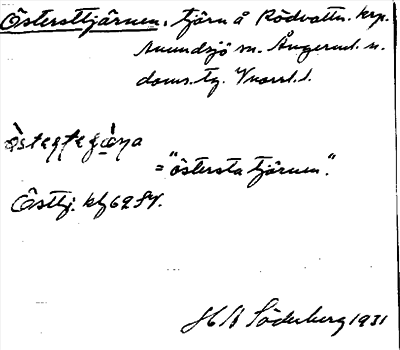 Östersttjärnen, tjärn å Rödvattn. krp.
Anundsjö sn. Ångerml. n.
doms.tg. Vnorrl. l.
="östersta tjärnen".
Östtj. kbl 62 SV.
H A Söderberg 1931